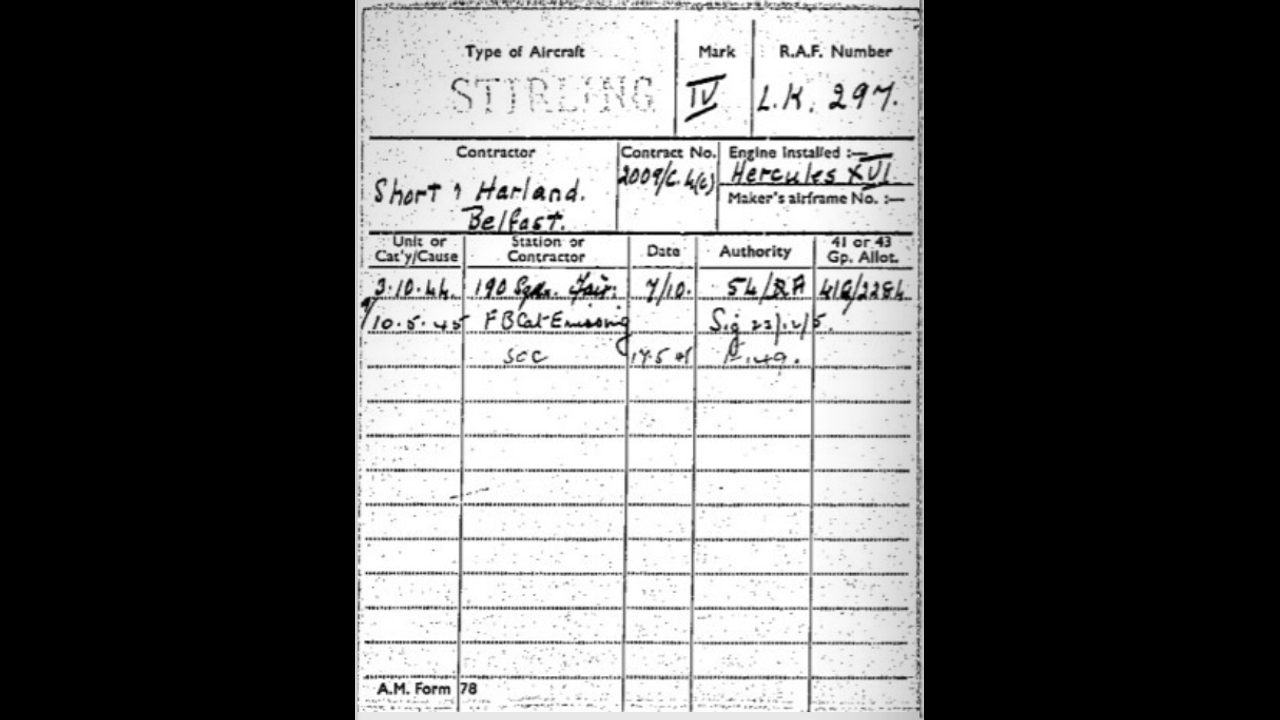 Type of Aircraft Mark R.A.F. Number
STIRLING IV L.K. 297.
Contractor Contract No. Engine installed :—
Short & Harland. 2009/C.4(c) Hercules XVI
Belfast. Maker's airframe No. :—
Unit or Cat'y/Cause Station or Contractor Date Authority 41 or 43 Gp. Allot.
3.10.44. 190 Sqdn. Fair. 7/10. 54/RA 41G/2284
10.5.45 FB Cat E missing Sig
SOC 17.5
A.M. Form 78